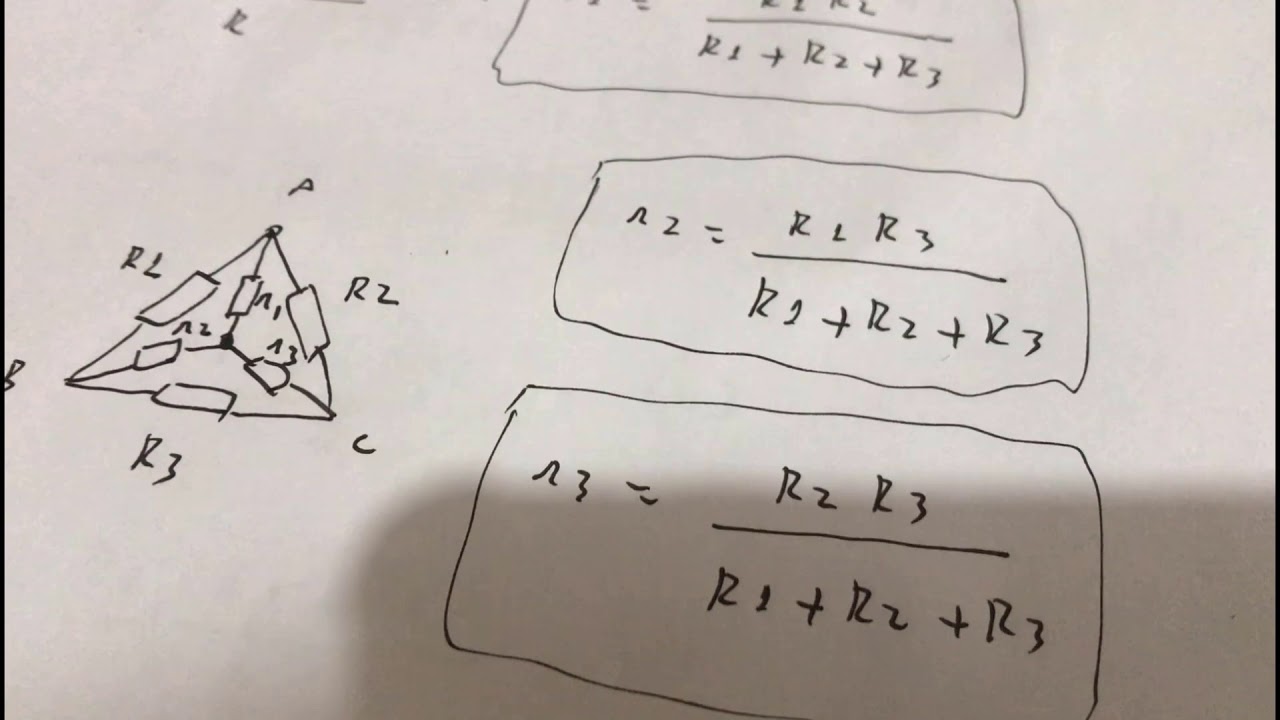 R
R1 R2
R1 + R2 + R3
A
R1
R2
r1
r2
r3
B
R3
C
r2 = R1 R3
R1 + R2 + R3
r3 = R2 R3
R1 + R2 + R3